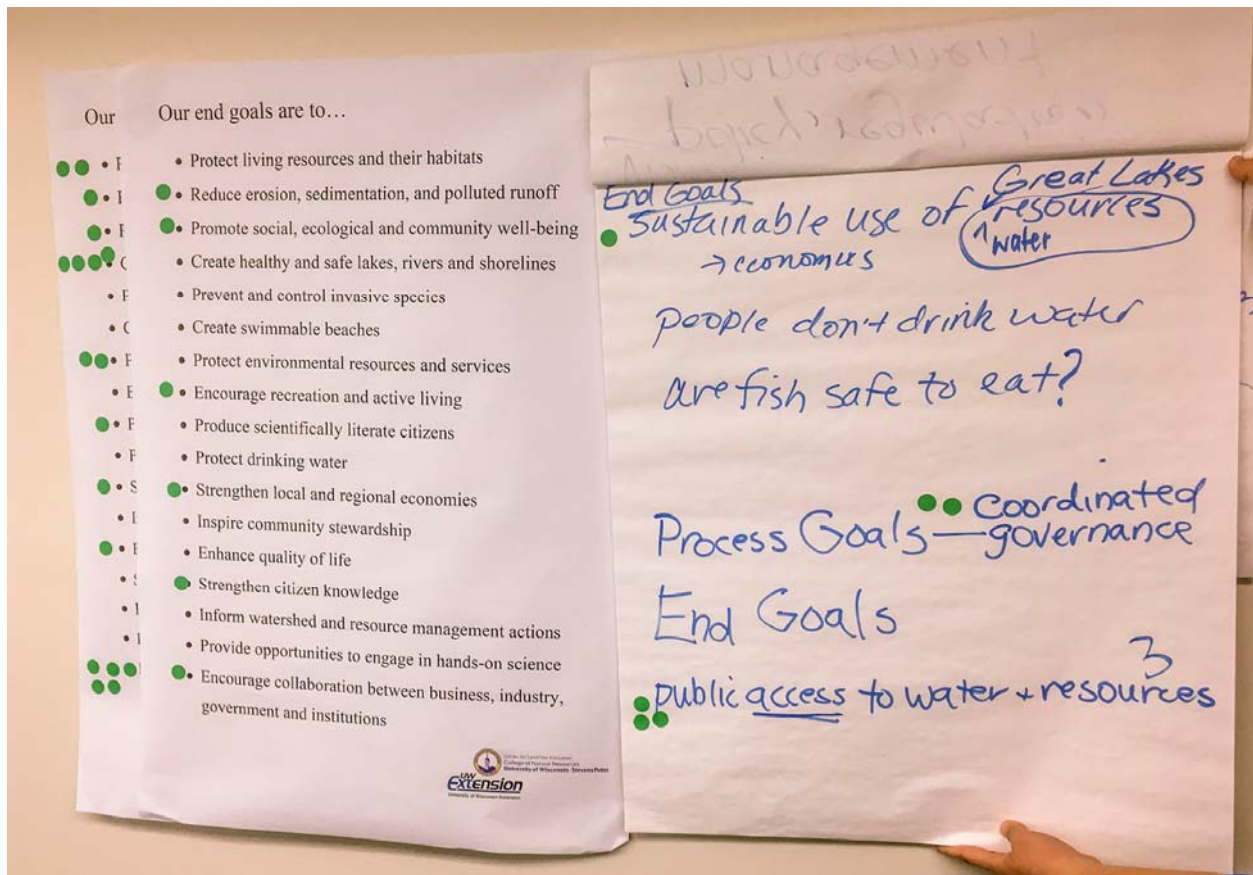 Our
Our end goals are to…
• Protect living resources and their habitats
• Reduce erosion, sedimentation, and polluted runoff
• Promote social, ecological and community well-being
• Create healthy and safe lakes, rivers and shorelines
• Prevent and control invasive species
• Create swimmable beaches
• Protect environmental resources and services
• Encourage recreation and active living
• Produce scientifically literate citizens
• Protect drinking water
• Strengthen local and regional economies
• Inspire community stewardship
• Enhance quality of life
• Strengthen citizen knowledge
• Inform watershed and resource management actions
• Provide opportunities to engage in hands-on science
• Encourage collaboration between business, industry,
government and institutions
College of Natural Resources
University of Wisconsin-Stevens Point
UW
Extension
University of Wisconsin-Extension
End Goals
Great Lakes
Sustainable use of resources
^water
→ economies
people don't drink water
are fish safe to eat?
Process Goals — coordinated
governance
End Goals
3
public access to water + resources